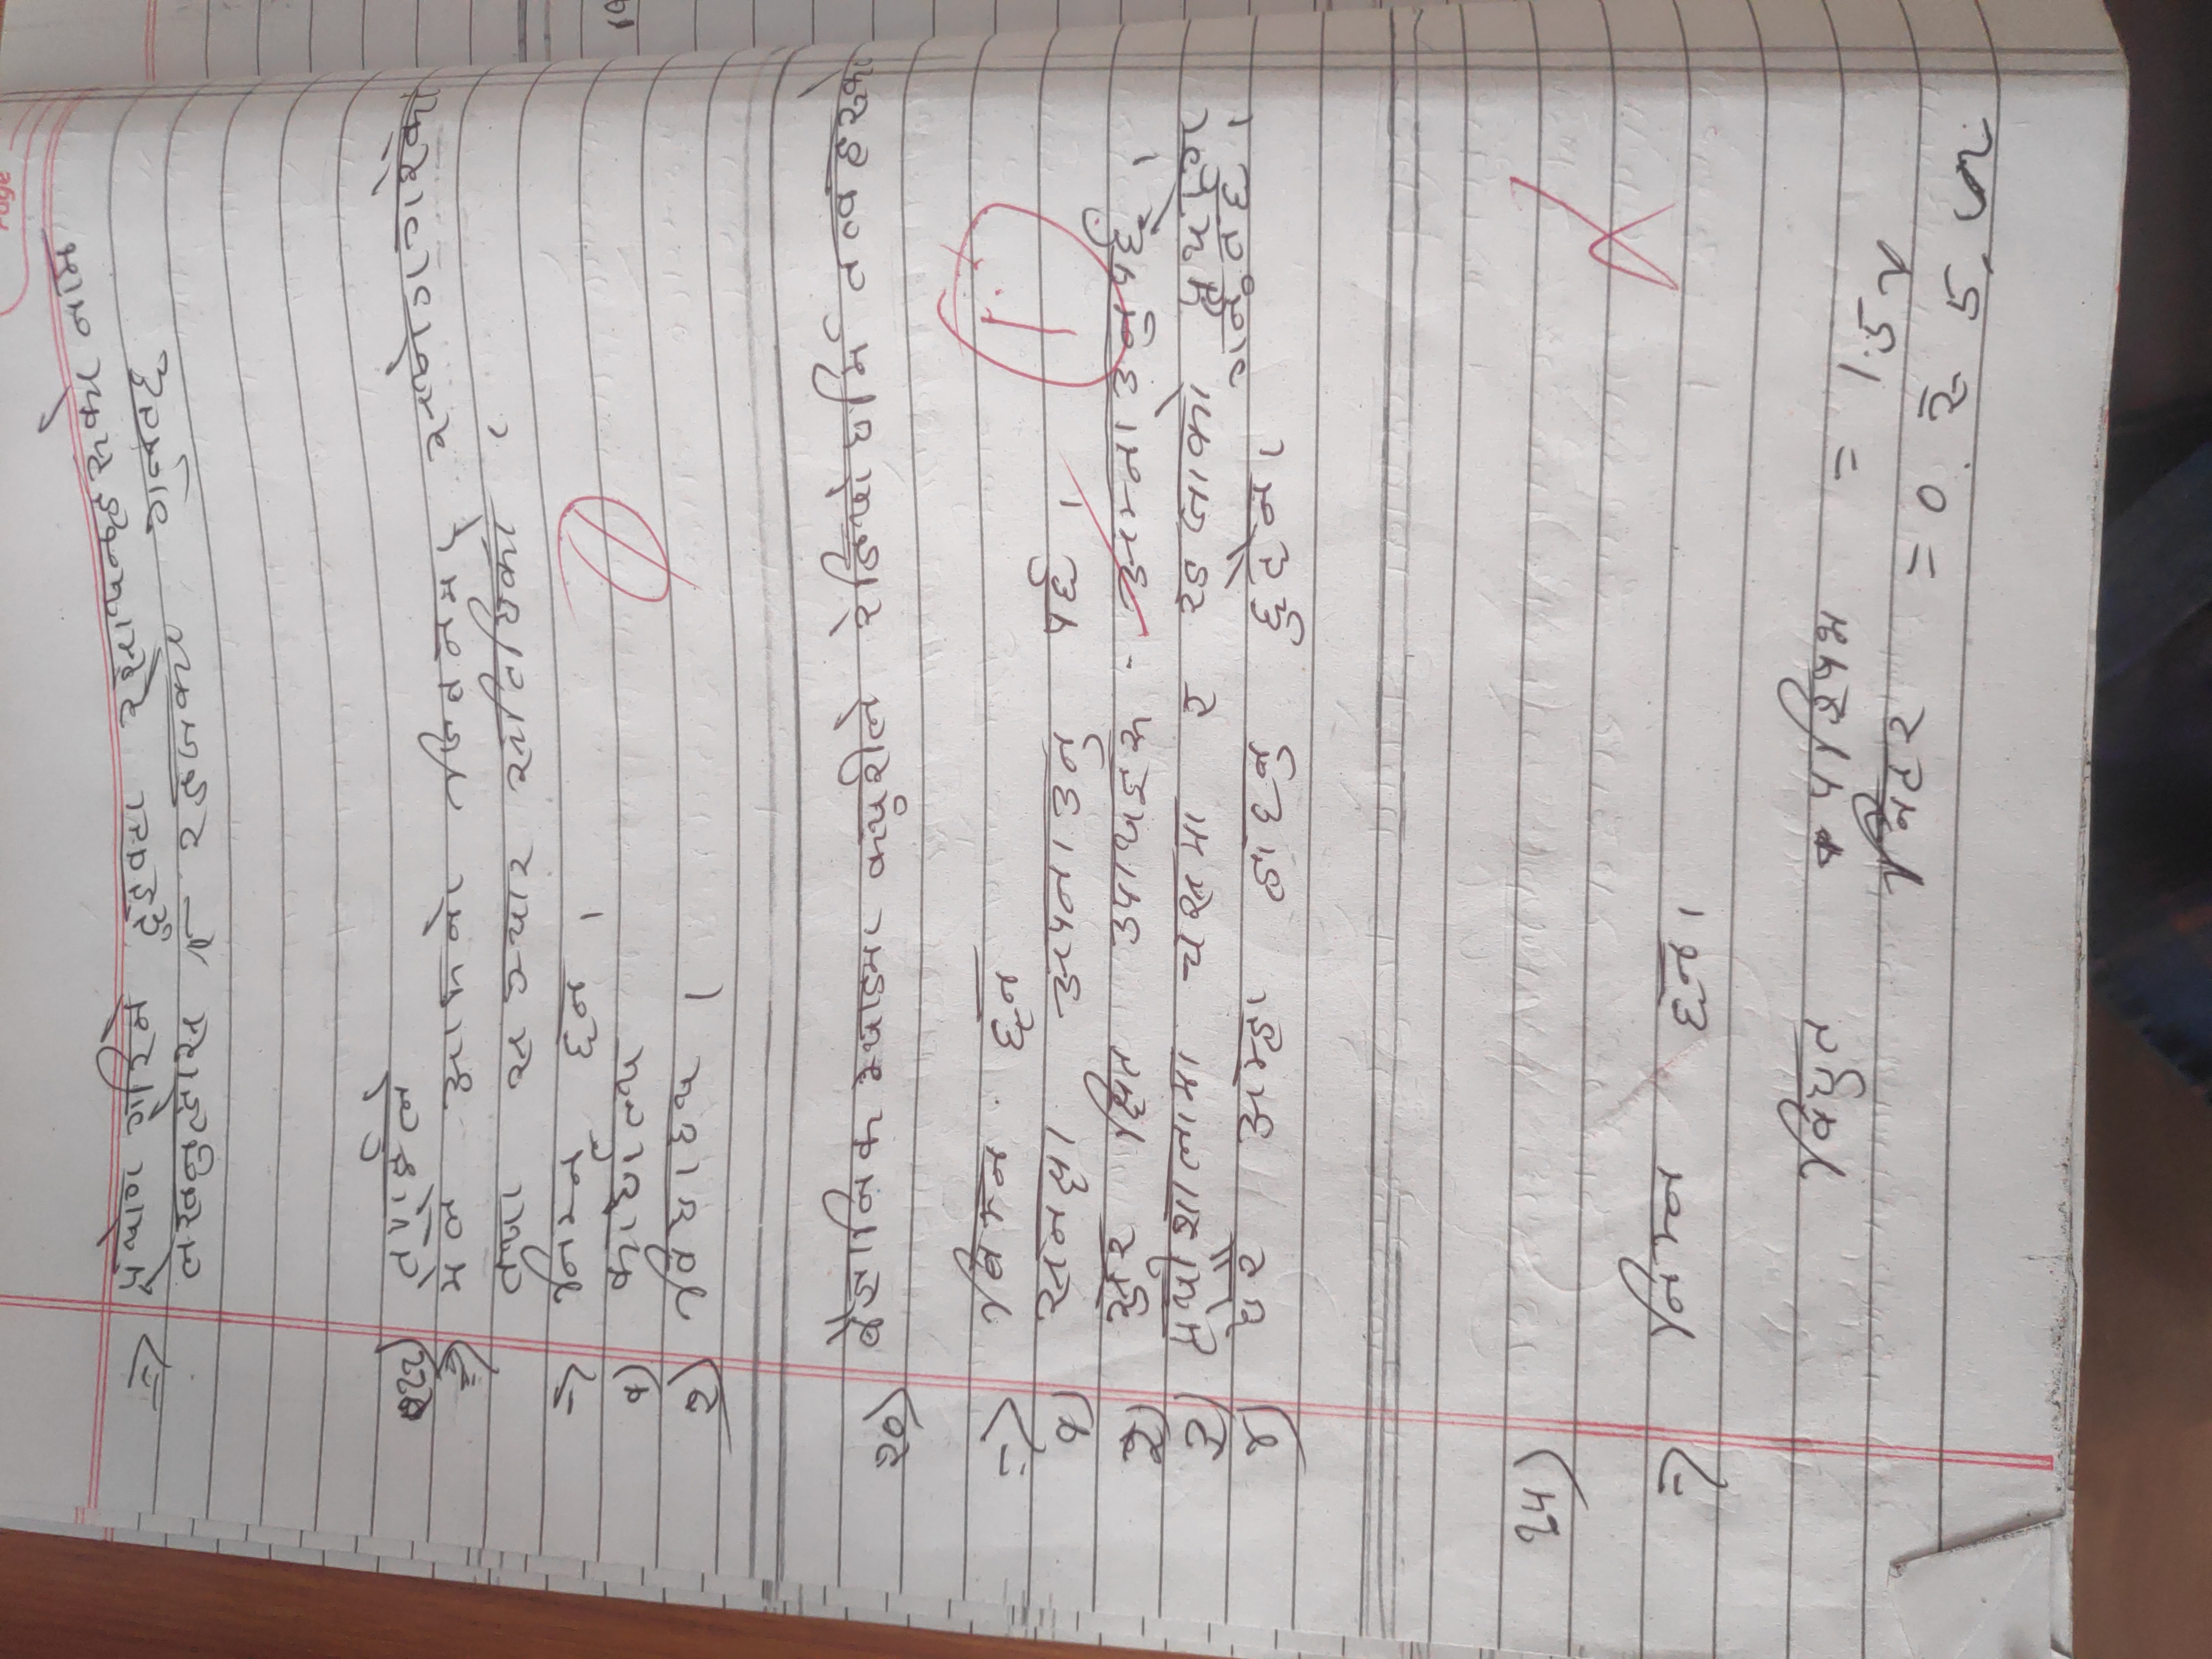 Page
=> प्रयोग गरिने दुइवटा रसायनहरुको नाम
लेख्नुहोस र रङजको गुनतछ
२२) तपाईले
=> मैले आफनो जिवनमा प्रयोग गरेको
तथा सञ्चार प्रतिधिको ।
=> निम्न छन ।
१) कार्यालय
२) विद्यालय ।
२०) वैज्ञानिक म्याडमा क्युरीले रेडियो धर्मि तत्वहरुको
=> निम्न छन
१) सतक्षा अपनाउनु पर्छ ।
२) सुरक्षित उपायहरु अप्नाउनुपर्छ ।
३) प्रयोशालामा चस्मा र रङजाको प्रयोग
गर्नुतछ ।
४) धेरै अम्हा हाहनु हुदैन ।
1
1
24)
=> निम्न छन ।
विद्युत परिपथ = 1.5 v
मिटर = 0. 5